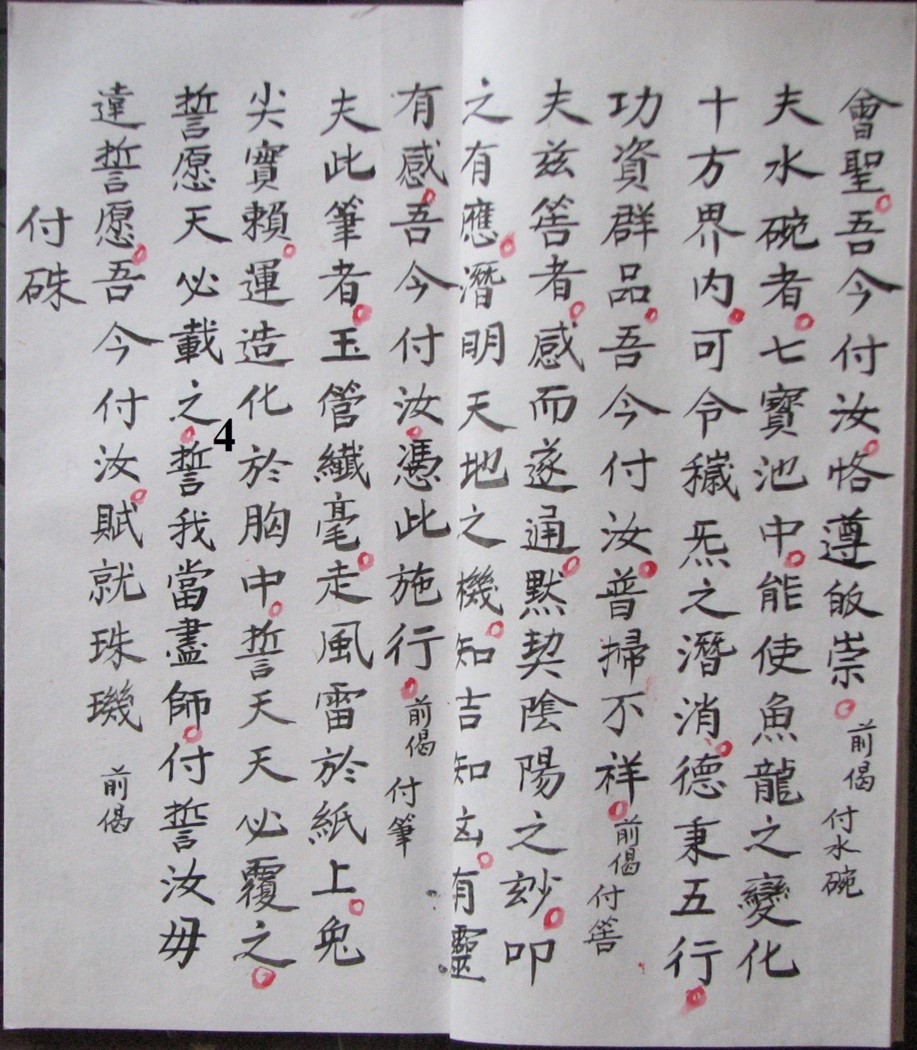 會聖吾今付汝恪遵皈崇前偈付水碗
夫水碗者七寶池中能使魚龍之變化
十方界内可令穢炁之潛消德秉五行
功資群品吾今付汝普掃不祥前偈付筶
夫兹筶者感而遂通默契陰陽之玅叩
之有應潛明天地之機知吉知凶有靈
有感吾今付汝憑此施行前偈付筆
夫此筆者玉管纖毫走風雷於紙上兔
尖寶賴運造化於胸中誓天天必覆之
誓愿天必載之誓我當盡師付誓汝毋
違誓愿吾今付汝賦就珠璣前偈
付硃
4